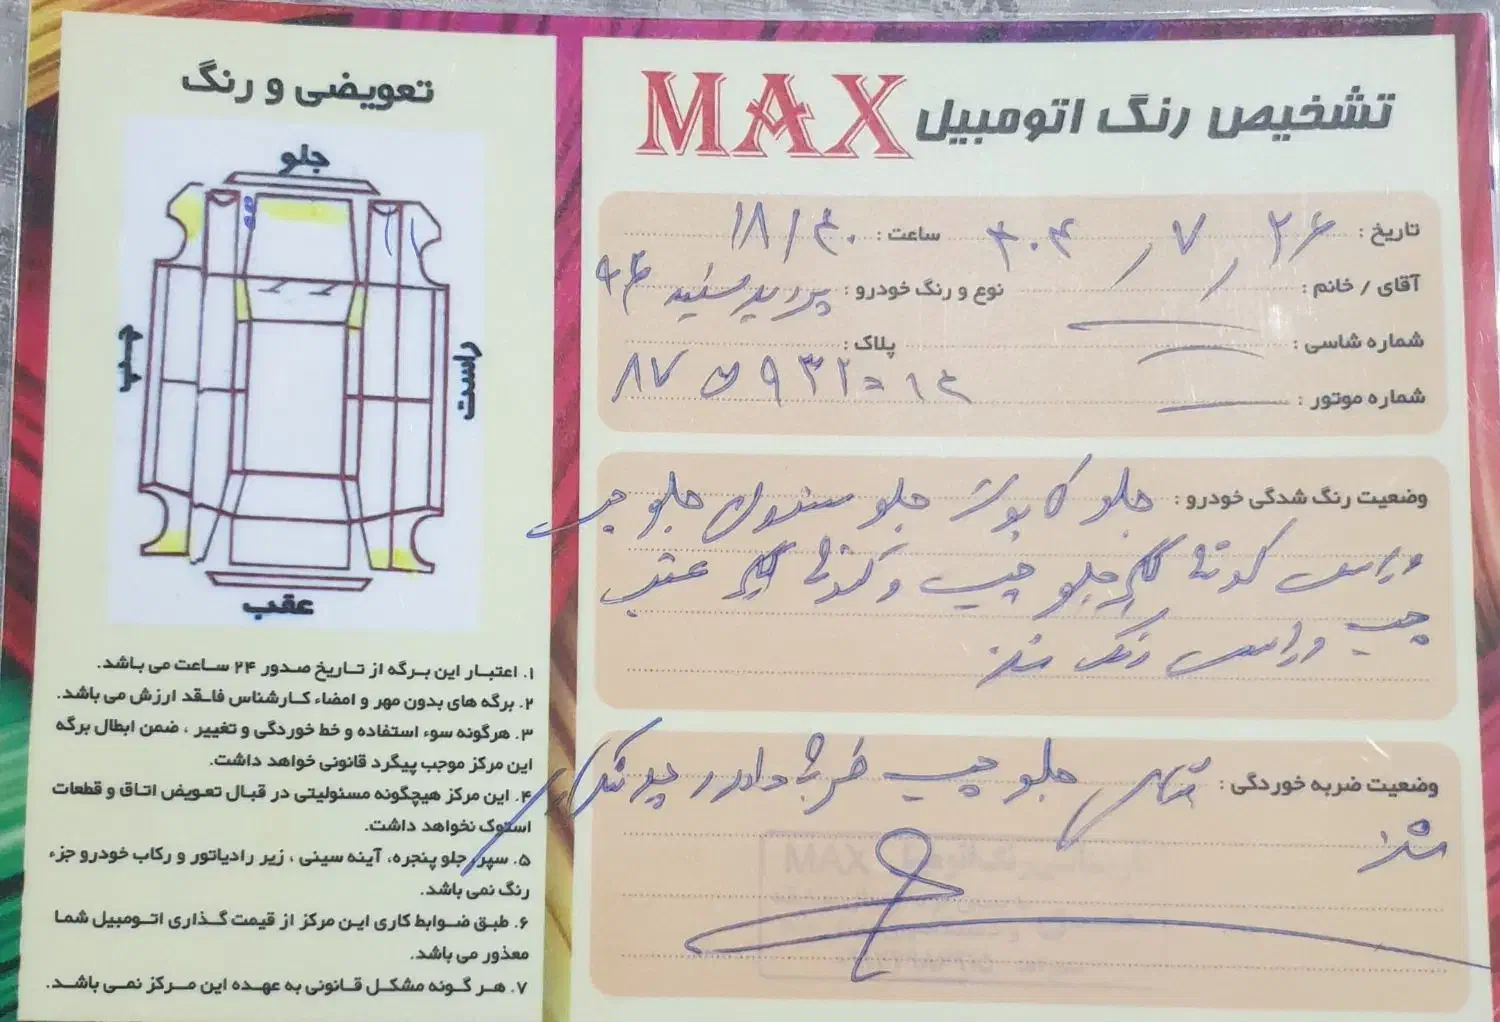 تشخیص رنگ اتومبیل MAX
تاریخ : ۲۶ / ۷ / ۴۰۴ ساعت : ۱۸/۴۰
آقای / خانم : نوع و رنگ خودرو : پراید سفید ۹۴
شماره شاسی : پلاک :
شماره موتور : ۸۷ ۹۳۲ = ۱۴
وضعیت رنگ شدگی خودرو : جلو کاپوت جلو ستون جلو چپ
و راست گلگیر جلو چپ و گلگیر عقب
چپ و راست رنگ شد
وضعیت ضربه خوردگی : جلو چپ ضربه دارد
شد
تعویضی و رنگ
جلو
چپ
راست
عقب
۱. اعتبار این برگه از تاریخ صدور ۲۴ ساعت می باشد.
۲. برگه های بدون مهر و امضاء کارشناس فاقد ارزش می باشد.
۳. هرگونه سوء استفاده و خط خوردگی و تغییر ، ضمن ابطال برگه
این مرکز موجب پیگرد قانونی خواهد داشت.
۴. این مرکز هیچگونه مسئولیتی در قبال تعویض اتاق و قطعات
استوک نخواهد داشت.
۵. سپر، جلو پنجره، آینه سینی ، زیر رادیاتور و رکاب خودرو جزء
رنگ نمی باشد.
۶. طبق ضوابط کاری این مرکز از قیمت گذاری اتومبیل شما
معذور می باشد.
۷. هر گونه مشکل قانونی به عهده این مرکز نمی باشد.